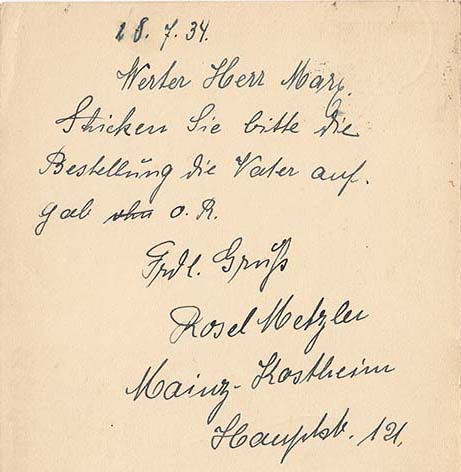 28. 7. 34.
Werter Herr Marx.
Schicken Sie bitte die
Bestellung die Vater auf-
gab o. R.
Frdl. Gruß
Rosel Metzler
Mainz-Kostheim
Hauptstr. 121.